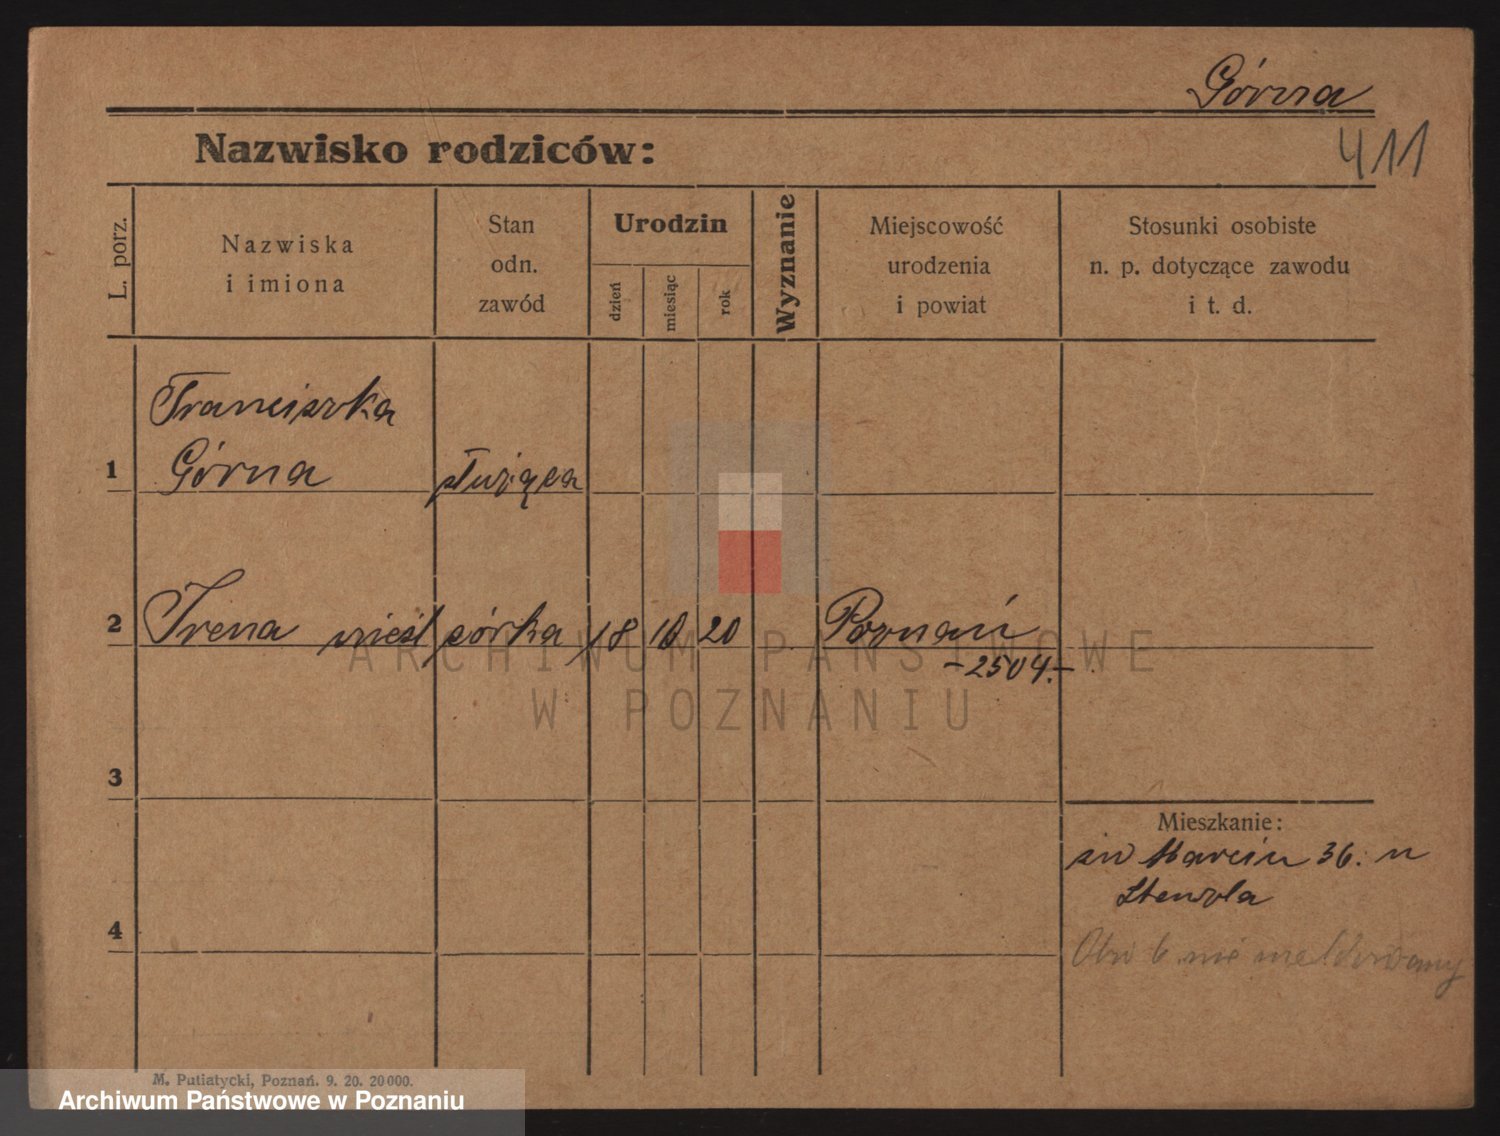 Górna
Nazwisko rodziców:
411
L. porz.
Nazwiska
i imiona
Stan
odn.
zawód
Urodzin
dzień
miesiąc
rok
Wyznanie
Miejscowość
urodzenia
i powiat
Stosunki osobiste
n. p. dotyczące zawodu
i t. d.
Franciszka
1 Górna służąca
2 Irena nieśl córka 18 10 20 Poznań
-2504.-
3
Mieszkanie:
św Marcin 36. u
Stenzla
4
nie meldowany
M. Putiatycki, Poznań. 9. 20. 20 000.
ARCHIWUM PAŃSTWOWE
W POZNANIU
Archiwum Państwowe w Poznaniu